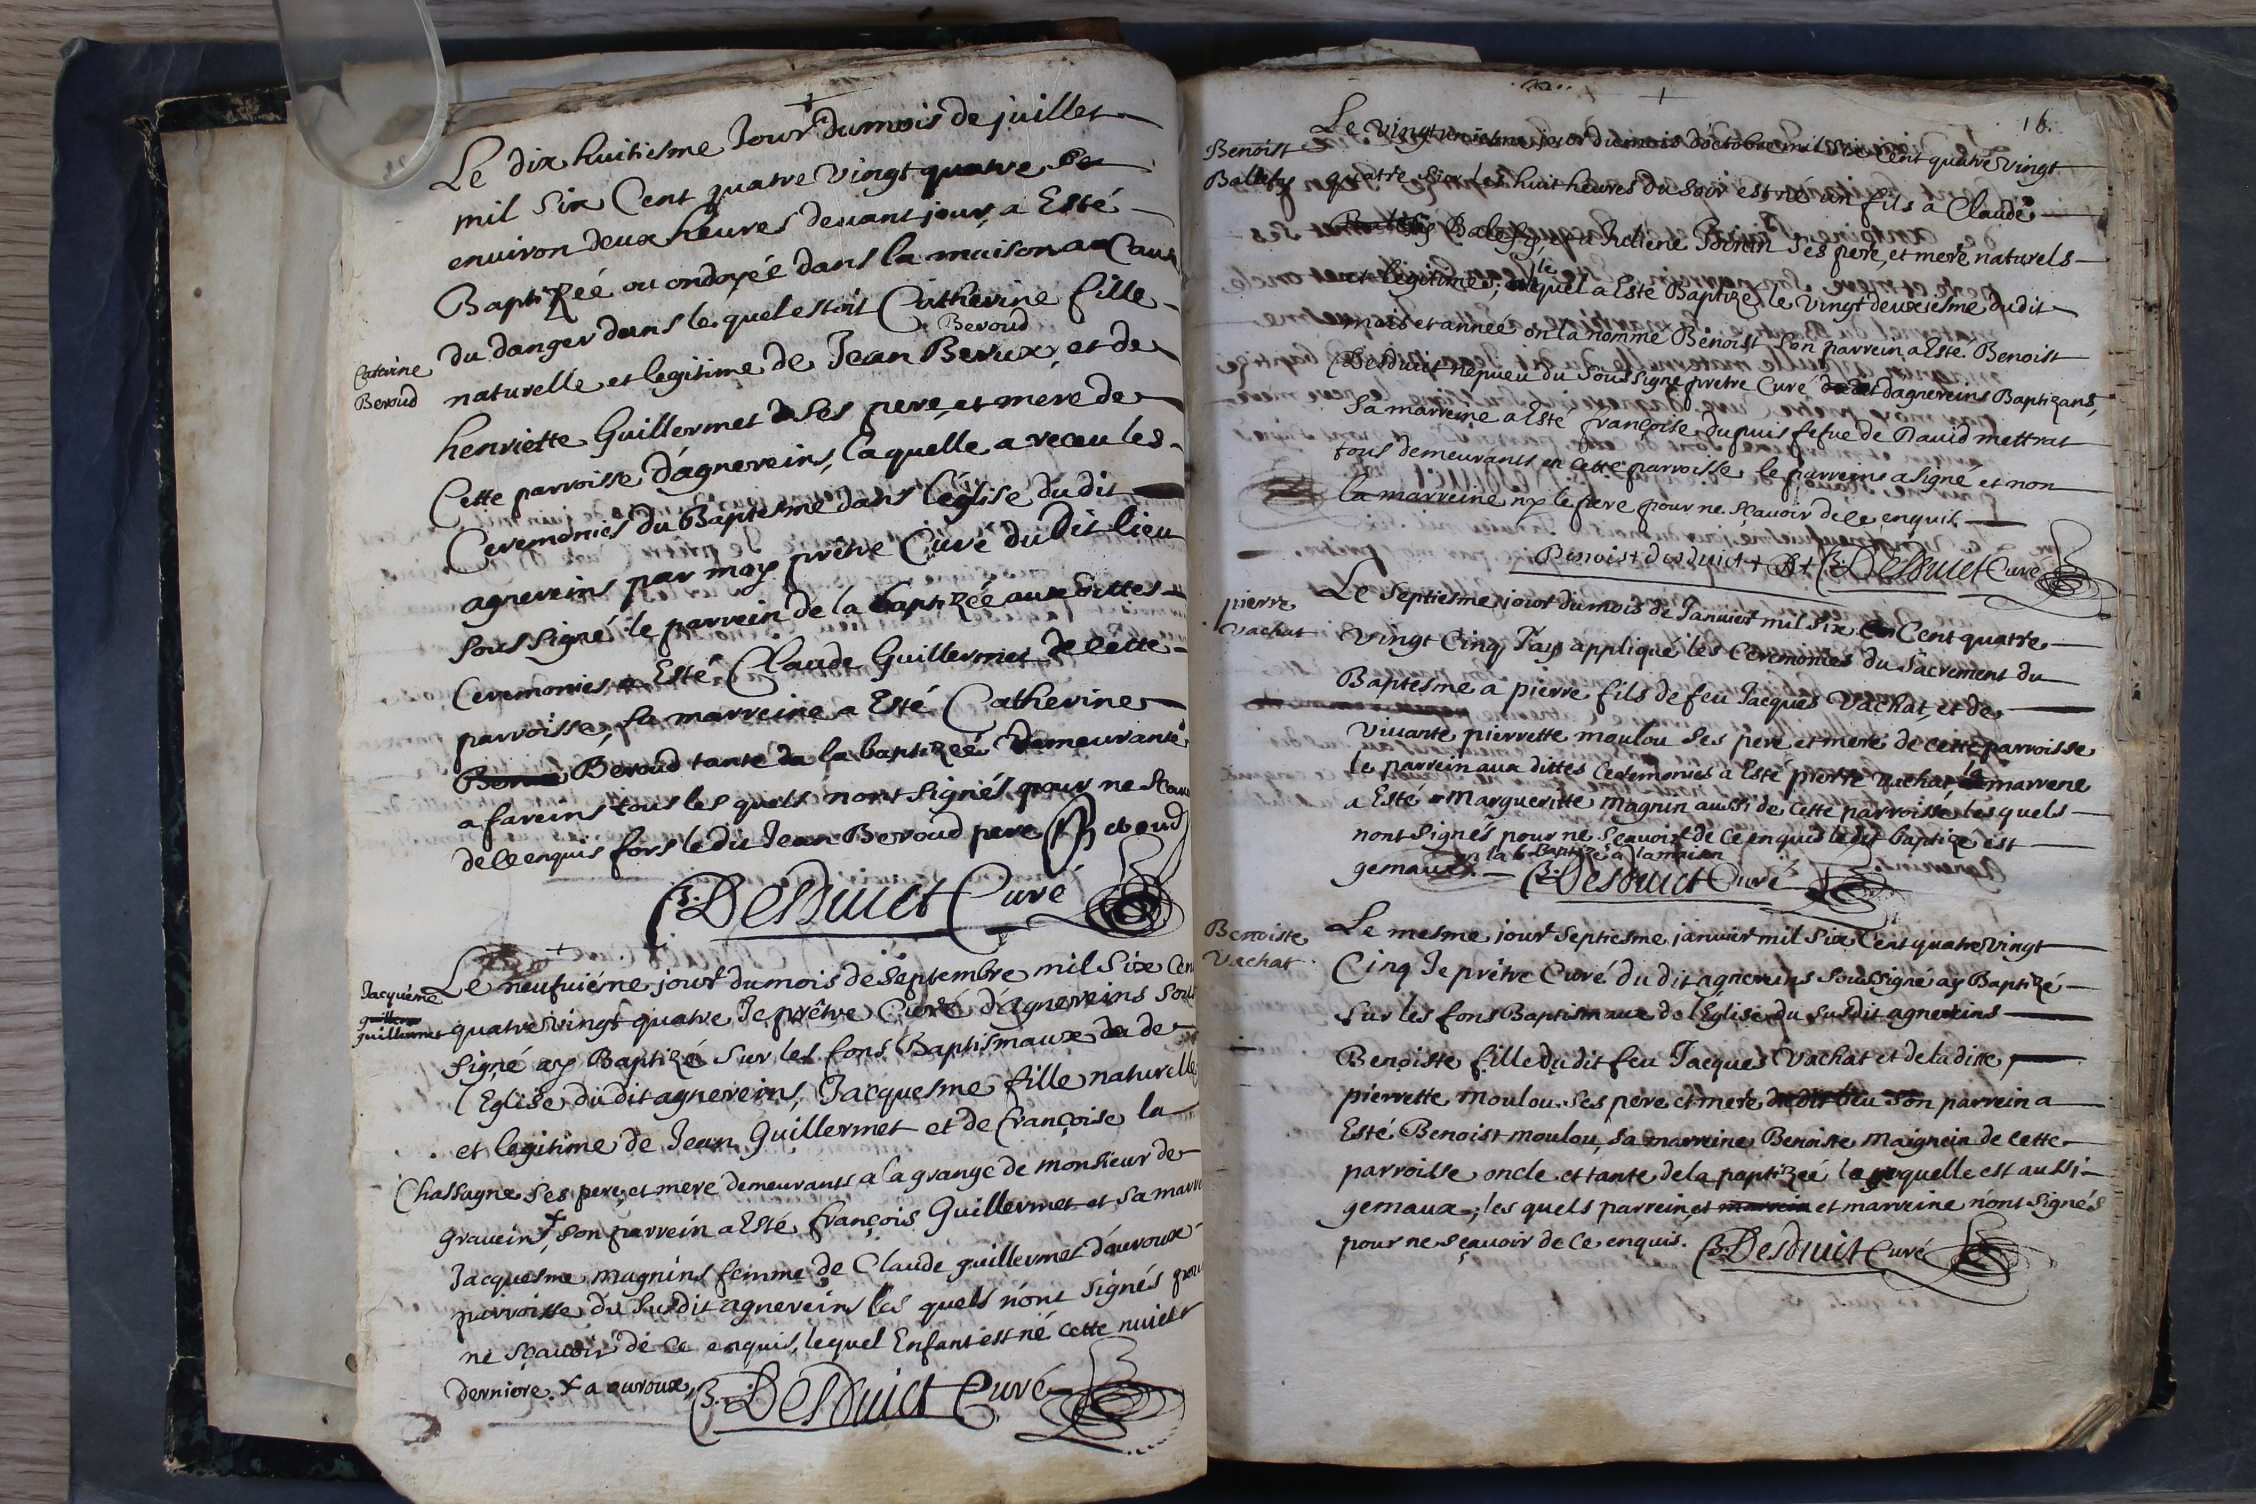 Le dix huitiesme Jour du mois de juillet
mil six Cent quatre vingt quatre
environ deux heures devant jour, a Esté
Baptizéé ou ondoyéé dans la maison a Cause
du danger dans le quel estoit Catherine fille
Beroud
Caterine
Beroud
naturelle et legitime de Jean et de
henriette Guillermet ses pere, et mere de
Cette parroisse d'agnereins, laquelle a receu les
Ceremonies du Baptesme dans l'eglise du dit
agnereins par moy prêtre Curé du Dit lieu
soussigné le parrein de la baptizéé aux dittes
Ceremonies a Esté Claude Guillermet de Cette
parroisse, sa marreine a Esté Catherine
Beroud tante de la baptizéé demeurante
a fareins tous les quels nont signés pour ne scavoir
de ce enquis fors le dit Jean Beroud pere Beroud
B. Desduict Curé
Jacquéme
guillermet
Le neufuiéme jour du mois de Septembre mil Six Cent
quatre vingt quatre Je prêtre Curé d'agnereins Sous
signé ay Baptizé sur les fons Baptismaux de
l'Eglise du dit agnereins, Jacquesme fille naturelle
et legitime de Jean Guillermet et de françoise la
Chassagne ses pere, et mere demeurants a la grange de monsieur de
Gravein + son parrein a Esté françois Guillermet et sa marre
Jacquesme magnin femme de Claude guillermet d'auroux
parroisse du susdit agnereins les quels n'ont signés pour
ne sçavoir de ce enquis, lequel Enfant est né cette nuict
derniere. + a ouroux, B. Desduict Curé
16.
Benoist
Balefy
Le vingt uniesme jour du mois d'octobre mil six Cent quatre vingt
quatre sur les huit heures du soir est né un fils a Claude
Balefy et a Juliene Ponin ses pere, et mere naturels
et legitimes; lequel a Esté Baptizé le vingt deuxiesme dudit
mois et année on la nomme Benoist son parrein a Esté Benoist
Desduict nepueu du Soussigné pretre Curé dagnereins Baptizant,
sa marreine a Esté françoise dupuis fefue de David mettrat
tous demeurants en cette parroisse le parrein a signé et non
la marreine ny le pere pour ne sçavoir de ce enquis
Benoist desduict B. Desduict Curé
pierre
vachat
Le Septiesme jour du mois de Janvier mil six Cent quatre
vingt Cinq J'ay appliqué les Ceremonies du Sacrement du
Baptesme a pierre fils de feu Jacques Vachat, et de
vivante pierrette moulou ses pere et mere de cette parroisse
le parrein aux dittes Ceremonies a Esté pierre vachat, la marrene
a Esté Margueritte magnin aussi de cette parroisse lesquels
nont signés pour ne sçavoir de ce enquis ledit baptizé est
on la Baptizé a la maison
gemaux. B. Desduict Curé
Benoiste
Vachat
Le mesme jour Septiesme janvier mil Six Cent quatre vingt
Cinq Je prêtre Curé du dit agnereins soussigné ay Baptizé
sur les fons Baptismaux de l'Eglise du susdit agnereins
Benoiste fille du dit feu Jacques Vachat et de la ditte
pierrette Moulou ses pere et mere son parrein a
Esté Benoist moulou, sa marreine Benoiste Maignein de Cette
parroisse oncle et tante de la baptizéé laquelle est aussi
gemaux; les quels parrein, et marreine n'ont signés
pour ne sçavoir de ce enquis. B. Desduit Curé